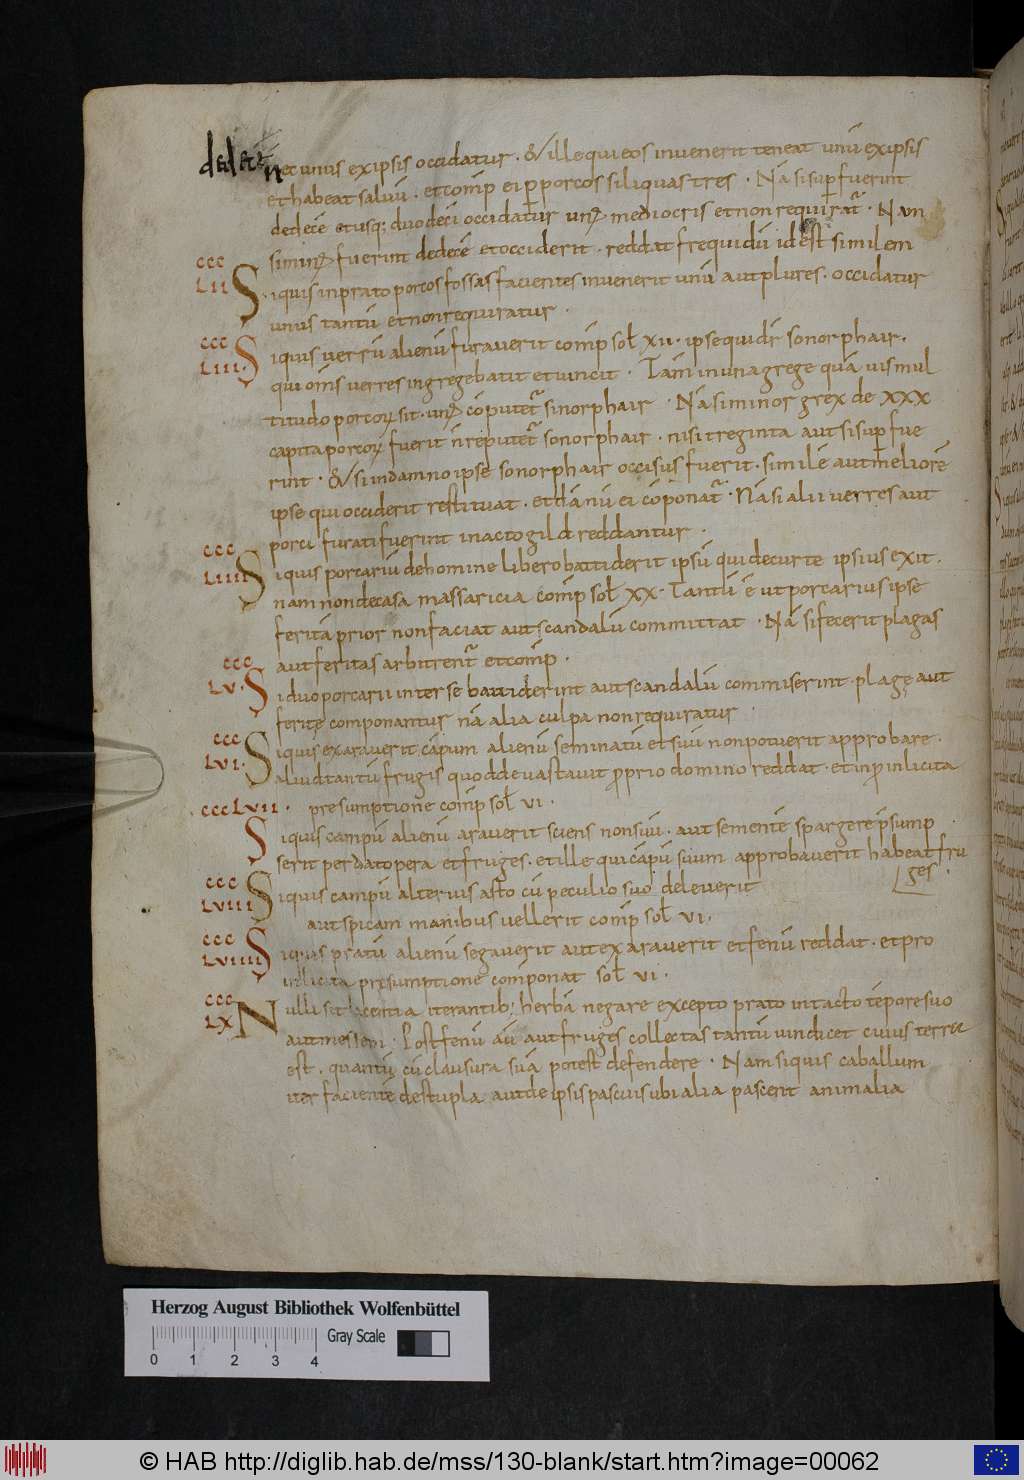 deleatur
nec unus exipsis occidatur . & ille qui eos invenerit teneat unū exipsis
et habeat salvū . et cōmp ei p porcos siliquas tres . Nā si sup fuerint
decē et usq; duodeci occidatur unꝰ mediocris et non requirat᷑ . Nā
si minꝰ fuerint decē et occiderit . reddat frequidū id est similem
ccc
LII
Siquis in prato porcos fossas facientes invenerit unū aut plures . occidatur
unus tantū et non requiratur .
ccc
LIII.
Siquis verrū alienū furaverit cōmp sol̄ XII . ipse quidē sonorphair .
qui om̄s verres in grege batit et vincit . Tam̄ in una grege quā vis mul
titudo porcoꝝ sit . unꝰ cōputet᷑ sinorphair . Nā si minor grex de XXX
capita porcoꝝ fuerit n̄ reputet᷑ sonorphair . nisi treginta aut si sup fue
rint . & si in damno ipse sonorphair occisus fuerit . similē aut meliorē
ipse qui occiderit restituat . et dānū ei cōponat᷑ . Nā si alii verres aut
porci furati fuerint in actogild reddantur .
ccc
LIIII
Siquis porcariū de homine libero battiderit ipsū qui de curte ipsius exit .
nam non de casa massaricia cōmp sol̄ XX . Tantū ē ut porcarius ipse
feritā prior non faciat aut scandalū committat . Nā si fecerit plagas
aut feritas arbitrent᷑ et cōmp .
ccc
LV.
Si duo porcarii inter se battiderint aut scandalū commiserint . plagę aut
feritę componantur nā alia culpa non requiratur .
ccc
LVI.
Siquis exaraverit cāpum alienū seminatū et suū non potuerit approbare .
aliud tantū frugis quod devastavit proprio domino reddat . et in p inlicita
cccLVII. presumptione cōmp sol̄ VI .
Siquis campū alienū araverit sciens non suū . aut sementē spargere p̄sump
serit perdat opera et fruges . et ille qui cāpū suum approbaverit habeat fru
ges .
ccc
LVIII
Siquis campū alterius asto cū peculio suo deleverit
aut spicam manibus vellerit cōmp sol̄ VI .
ccc
LVIIII
Siquis pratū alienū segaverit aut exaraverit et fenū reddat . et pro
inlicita presumptione cōmponat sol̄ VI .
ccc
LX
Nulli sit licentia iterantib; herbā negare excepto prato intacto tēpore suo
aut messem . Post fenū aū aut fruges collectas tantū vindicet cuius terrae
est . quantū cū clausura suā potest defendere . Nam siquis caballum
iter facientē de stupla aut de ipsis pascuis ubi alia pascent animalia
Herzog August Bibliothek Wolfenbüttel
Gray Scale
0 1 2 3 4
© HAB http://diglib.hab.de/mss/130-blank/start.htm?image=00062